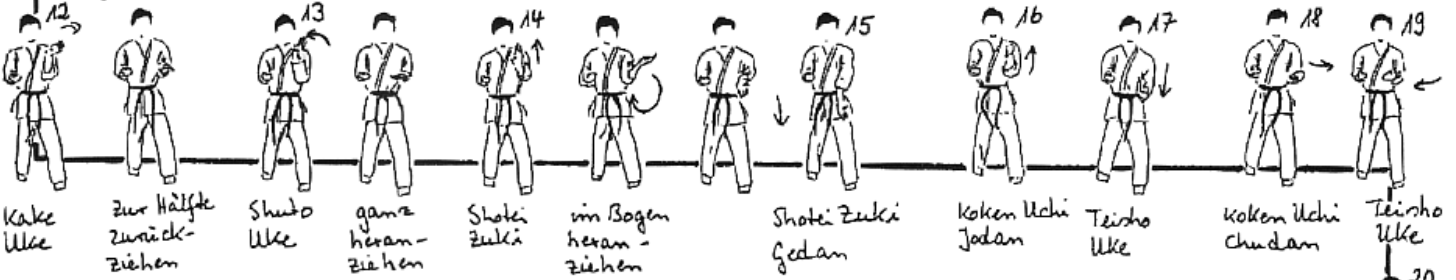 12 13 14 15 16 17 18 19
Kake
Uke
zur Hälfte
zurück-
ziehen
Shuto
Uke
ganz
heran-
ziehen
Shotei
Zuki
im Bogen
heran-
ziehen
Shotei Zuki
Gedan
Koken Uchi
Jodan
Teisho
Uke
Koken Uchi
Chudan
Teisho
Uke
20